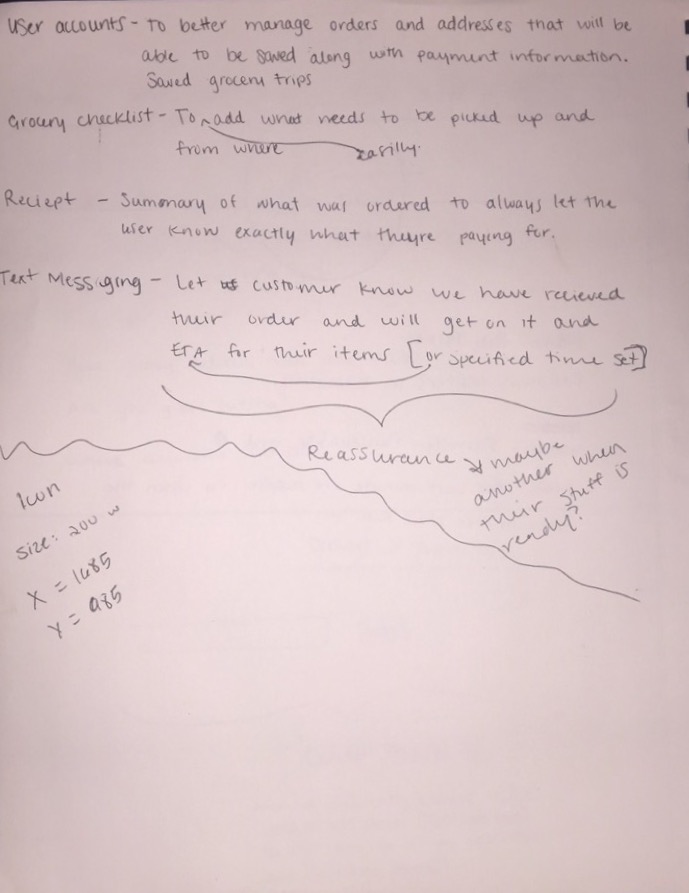 User accounts - To better manage orders and addresses that will be
able to be saved along with payment information.
Saved grocery trips
Grocery checklist - To ^ add what needs to be picked up and
from where easilly.
Reciept - Summary of what was ordered to always let the
user know exactly what theyre paying for.
Text Messaging - Let customer know we have recieved
their order and will get on it and
ETA for their items [or specified time set]
Reassurance maybe
another when
their stuff is
ready?
Icon
size: 200 w
X = 1685
Y = 985